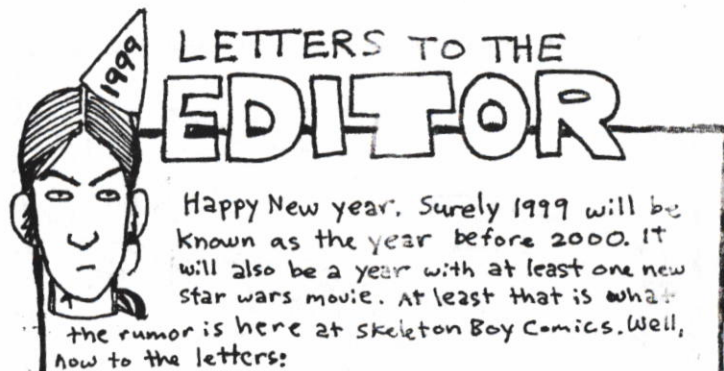 1999
LETTERS TO THE
EDITOR
Happy New year. Surely 1999 will be
known as the year before 2000. It
will also be a year with at least one new
star wars movie. At least that is what
the rumor is here at Skeleton Boy Comics. Well,
now to the letters: